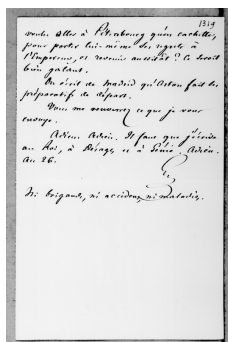 1349
voulu aller à Pétersbourg qu'en cachette,
pour porter lui-même ses regrets à
l'Empereur, et revenir aussitôt? Ce serait
bien galant.
On écrit de Madrid qu'Acton fait les
préparatifs de départ.
Vous me renverrez ce que je vous
envoye.
Adieu. Adieu. Il faut que j'écrive
au Roi, à Péage, et à Génie. Adieu.
Au 26.
G.
Ni brigands, ni accidens, ni maladies.